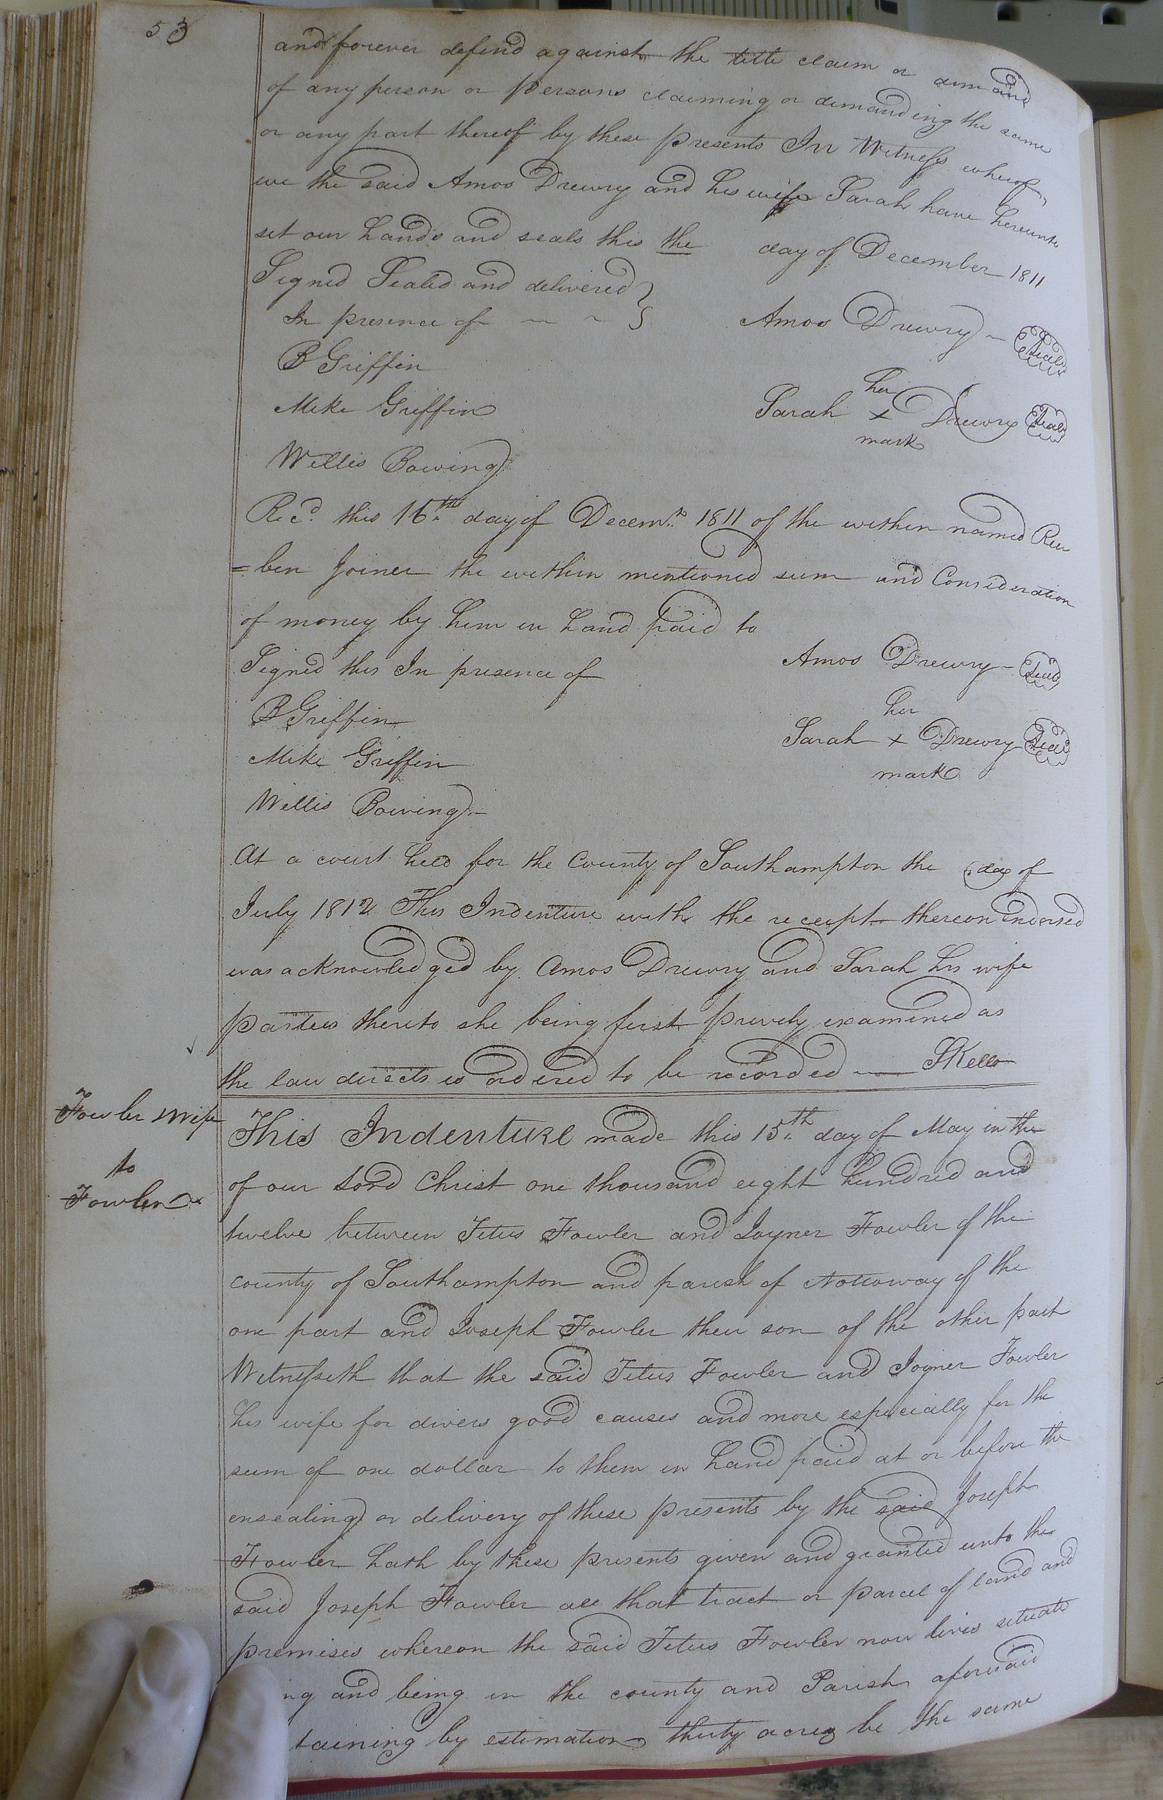 53
and forever defend against the title claim or demand
of any person or persons claiming or demanding the same
or any part thereof by these presents In Witness whereof
we the said Amos Drewry and his wife Sarah have hereunto
set our hands and seals this the day of December 1811
Signed Sealed and delivered }
In presence of ~ ~ }
Amos Drewry ~ Seal
B Griffin
her
Mike Griffin
Sarah x Drewry Seal
mark
Willis Bowing
Recd. this 16th. day of Decemr. 1811 of the within named Reu
=ben Joiner the within mentioned sum and Consideration
of money by him in hand paid to
Signed this In presence of
Amos Drewry – Seal
B Griffin
her
Sarah x Drewry Seal
Mike Griffin
mark
Willis Bowing –
At a court held for the County of Southampton the day of
July 1812 This Indenture with the receipt thereon Endorsed
was acknowledged by Amos Drewry and Sarah his wife
parties thereto she being first privily examined as
the law directs is ordered to be recorded — SKello
Fowler & Wife
to
Fowler
This Indenture made this 15th. day of May in the
of our Lord Christ one thousand eight hundred and
twelve between Titus Fowler and Joyner Fowler of the
county of Southampton and parish of Nottoway of the
one part and Joseph Fowler their son of the other part
Witnesseth that the said Titus Fowler and Joyner Fowler
his wife for divers good causes and more especially for the
sum of one dollar to them in hand paid at or before the
ensealing or delivery of these presents by the said Joseph
Fowler hath by these presents given and granted unto the
said Joseph Fowler all that tract or parcel of land and
premises whereon the said Titus Fowler now lives situate
ng and being in the county and Parish aforesaid
taining by estimation thirty acres be the same